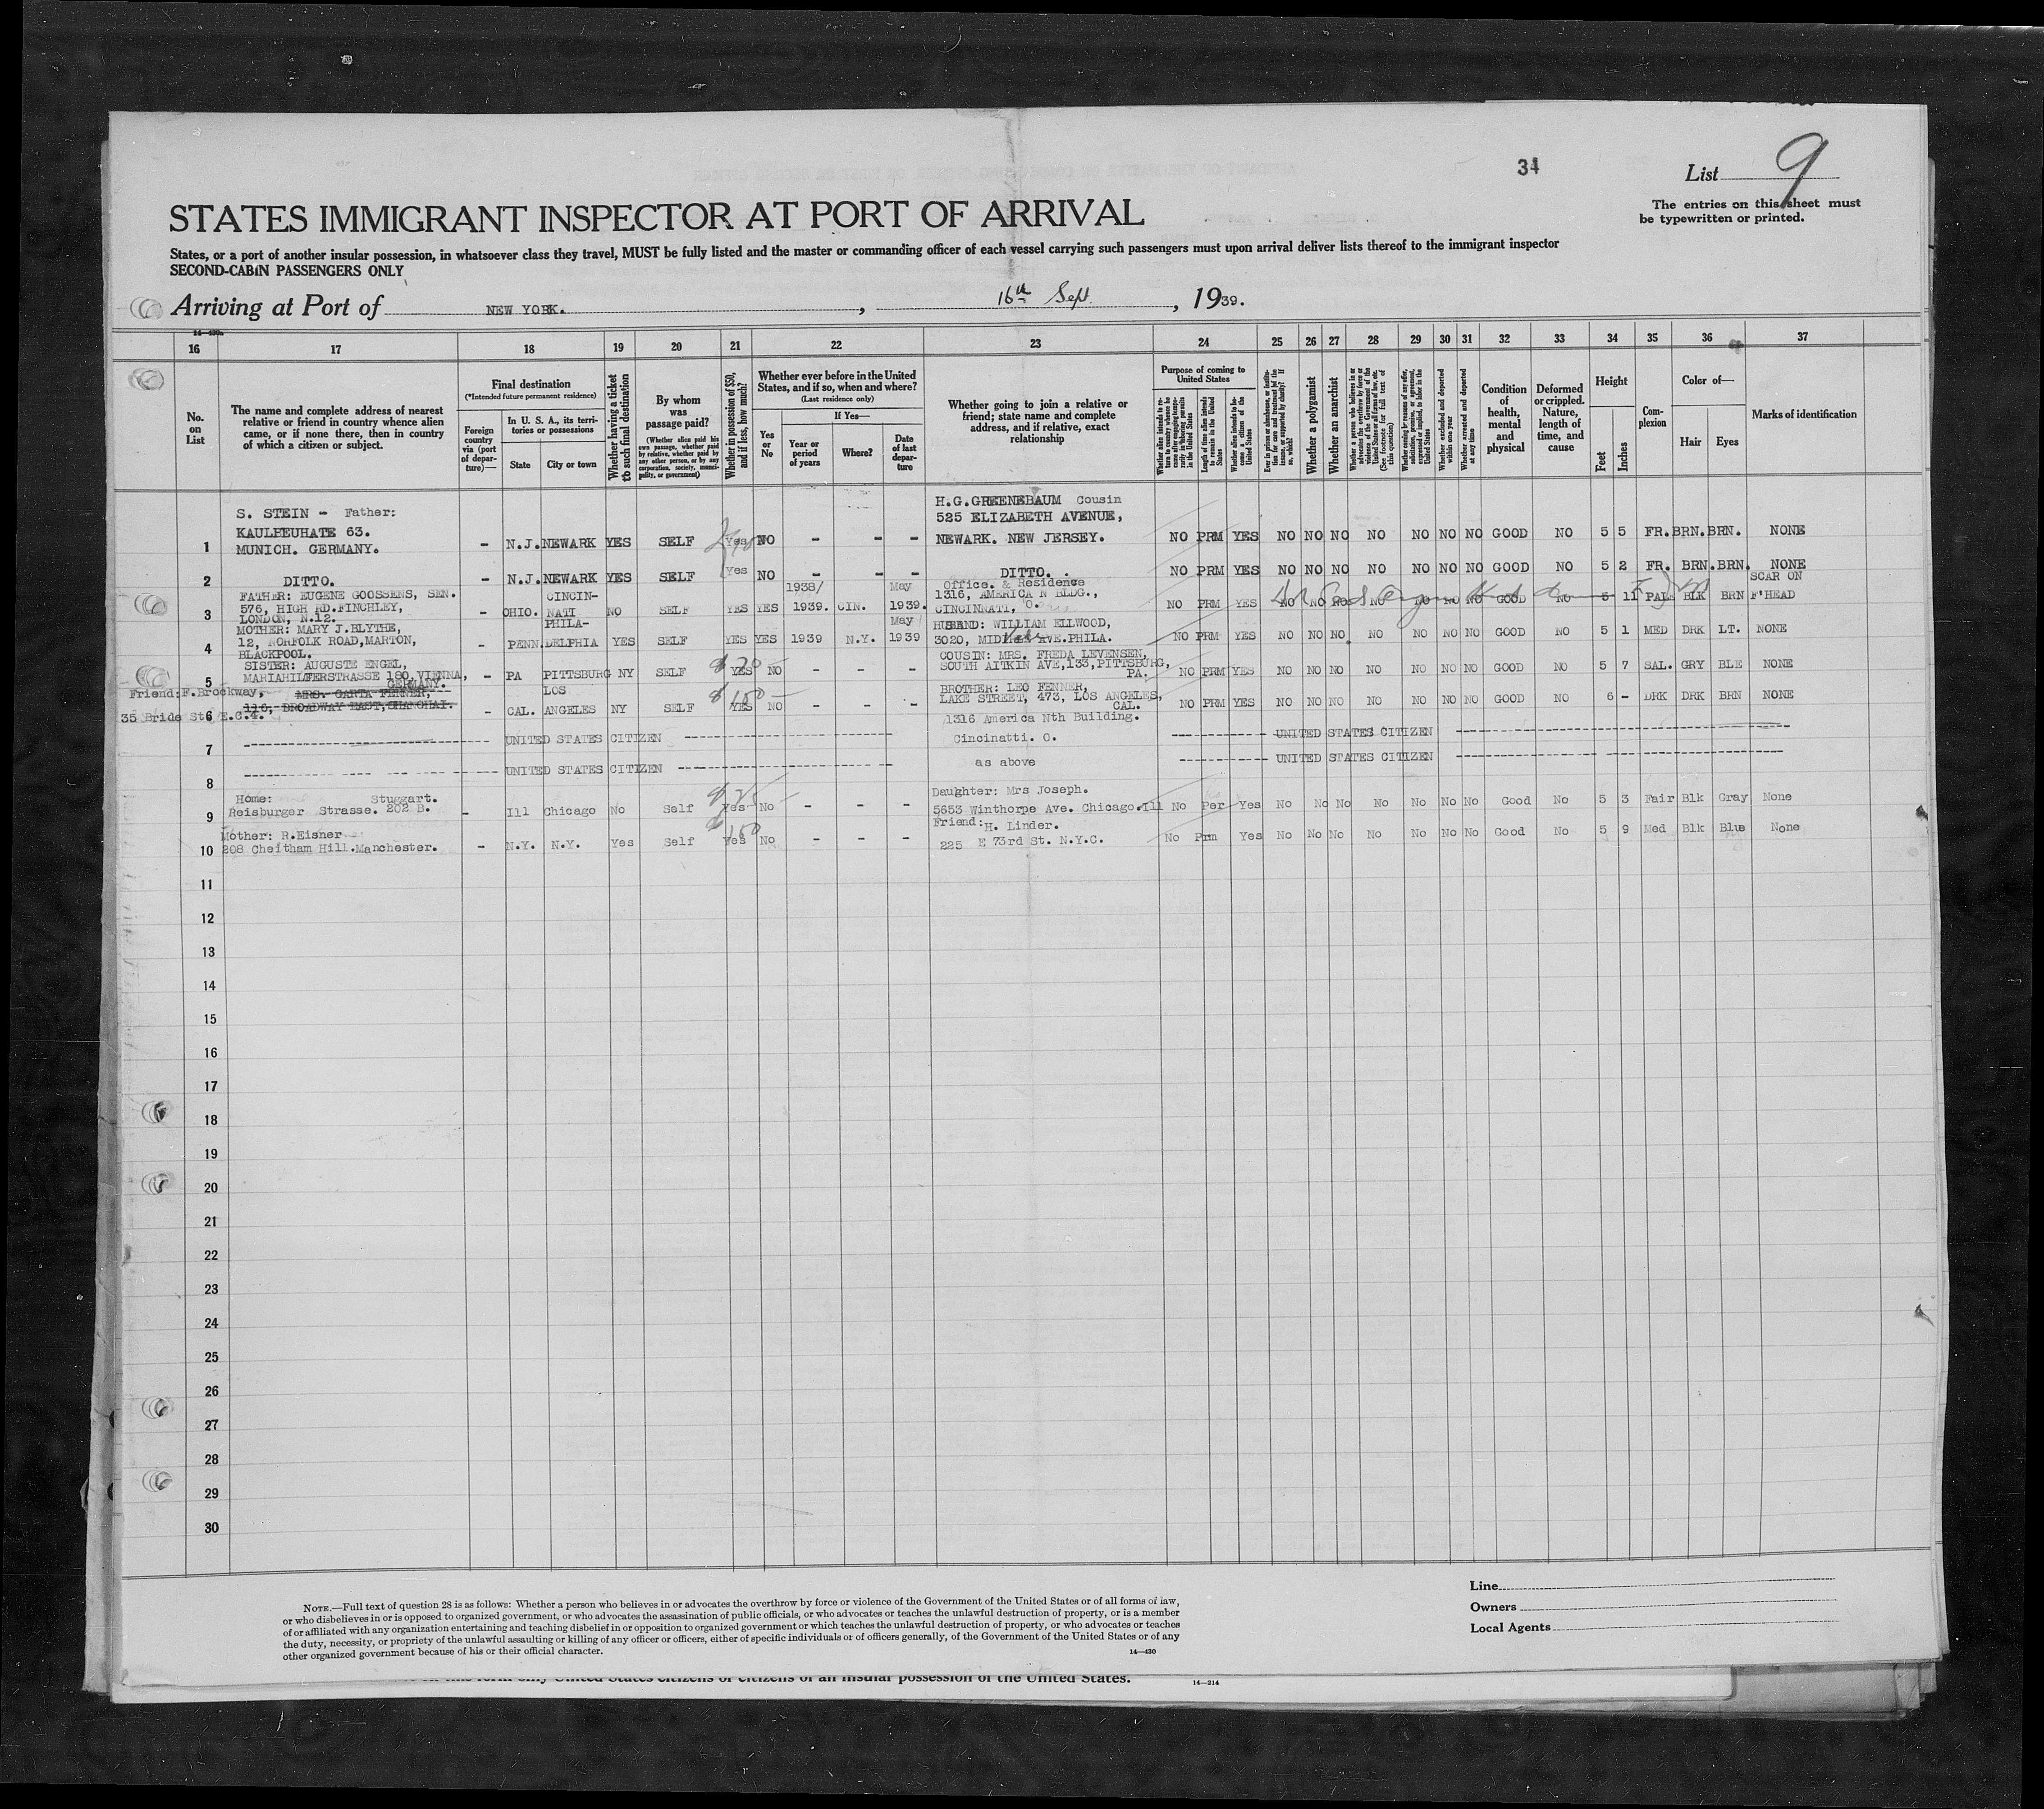 34
List 9
The entries on this sheet must
be typewritten or printed.
STATES IMMIGRANT INSPECTOR AT PORT OF ARRIVAL
States, or a port of another insular possession, in whatsoever class they travel, MUST be fully listed and the master or commanding officer of each vessel carrying such passengers must upon arrival deliver lists thereof to the immigrant inspector
SECOND-CABIN PASSENGERS ONLY
Arriving at Port of NEW YORK. , 16th Sept. , 1939.
16 17 18 19 20 21 22 23 24 25 26 27 28 29 30 31 32 33 34 35 36 37
No.
on
List
The name and complete address of nearest
relative or friend in country whence alien
came, or if none there, then in country
of which a citizen or subject.
Final destination
(*Intended future permanent residence)
Foreign
country
via (port
of depar-
ture)—
In U. S. A., its terri-
tories or possessions
State
City or town
Whether having a ticket
to such final destination
By whom
was
passage paid?
(Whether alien paid his
own passage, whether paid
by relative, whether paid by
any other person, or by any
corporation, society, munici-
pality, or government)
Whether in possession of $50,
and if less, how much?
Whether ever before in the United
States, and if so, when and where?
(Last residence only)
Yes
or
No
If Yes—
Year or
period
of years
Where?
Date
of last
depar-
ture
Whether going to join a relative or
friend; state name and complete
address, and if relative, exact
relationship
Purpose of coming to
United States
Length of time alien intends
to remain in the United
States
Whether alien intends to be-
come a citizen of the
United States
Whether a polygamist
Whether an anarchist
Whether excluded and deported
within one year
Whether arrested and deported
at any time
Condition
of
health,
mental
and
physical
Deformed
or crippled.
Nature,
length of
time, and
cause
Height
Feet
Inches
Com-
plexion
Color of—
Hair
Eyes
Marks of identification
S. STEIN - Father:
H.G.GREENEBAUM Cousin
525 ELIZABETH AVENUE,
1 MUNICH. GERMANY. - N.J. NEWARK YES SELF Yes NO - - - NEWARK. NEW JERSEY. NO PRM YES NO NO NO NO NO NO NO GOOD NO 5 5 FR. BRN. BRN. NONE
2 DITTO. - N.J. NEWARK YES SELF Yes NO - - - DITTO. NO PRM YES NO NO NO NO NO NO NO GOOD NO 5 2 FR. BRN. BRN. NONE
FATHER: EUGENE GOOSSENS, SEN. CINCIN- 1938/ May Office. & Residence SCAR ON
576, HIGH RD.FINCHLEY, 1316, AMERICA N BLDG.,
3 LONDON, N.12. - OHIO. NATI NO SELF YES YES 1939. CIN. 1939. CINCINATI, O. NO PRM YES NO NO NO NO NO NO NO GOOD NO 5 11 PAL BLK BRN F'HEAD
MOTHER: MARY J.BLYTHE, PHILA- May HUSBAND: WILLIAM ELLWOOD,
12, NORFOLK ROAD,MARTON,
4 BLACKPOOL. - PENN. DELPHIA YES SELF YES YES 1939 N.Y. 1939 3020, AVE.PHILA. NO PRM YES NO NO NO NO NO NO NO GOOD NO 5 1 MED DRK LT. NONE
SISTER: AUGUSTE ENGEL, COUSIN: MRS. FREDA LEVENSEN,
MARIAHILFERSTRASSE 180,VIENNA, SOUTH AITKIN AVE,133,PITTSBURG,
5 GERMANY. - PA PITTSBURG NY SELF YES NO - - - PA. NO PRM YES NO NO NO NO NO NO NO GOOD NO 5 7 SAL. GRY BLE NONE
Friend:F.Brockway, MRS. CARTA FENNER, LOS $150 BROTHER: LEO FENNER,
116, BROADWAY EAST,SHANGHAI. LAKE STREET, 473, LOS ANGELES,
35 Bride St. E.C.4. 6 - CAL. ANGELES NY SELF YES NO - - - CAL. NO PRM YES NO NO NO NO NO NO NO GOOD NO 6 - DRK DRK BRN NONE
1316 America Nth Building.
7 UNITED STATES CITIZEN Cincinatti. O. UNITED STATES CITIZEN
8 UNITED STATES CITIZEN as above UNITED STATES CITIZEN
Home: Stuggart. Daughter: Mrs Joseph.
9 Reisburger Strasse. 202 B. - Ill Chicago No Self Yes No - - - 5653 Winthorpe Ave. Chicago.Ill No Per Yes No No No No No No No Good No 5 3 Fair Blk Gray None
Mother: R.Eisner $150 Friend: H. Linder.
10 208 Cheitham Hill.Manchester. - N.Y. N.Y. Yes Self Yes No - - - 225 E 73rd St. N.Y.C. No Prm Yes No No No No No No No Good No 5 9 Med Blk Blue None
11
12
13
14
15
16
17
18
19
20
21
22
23
24
25
26
27
28
29
30
NOTE.—Full text of question 28 is as follows: Whether a person who believes in or advocates the overthrow by force or violence of the Government of the United States or of all forms of law,
or who disbelieves in or is opposed to organized government, or who advocates the assassination of public officials, or who advocates or teaches the unlawful destruction of property, or is a member
of or affiliated with any organization entertaining and teaching disbelief in or opposition to organized government or which teaches the unlawful destruction of property, or who advocates or teaches
the duty, necessity, or propriety of the unlawful assaulting or killing of any officer or officers, either of specific individuals or of officers generally, of the Government of the United States or of any
other organized government because of his or their official character.
14—430
Line
Owners
Local Agents
on this form only United States citizens or citizens of an insular possession of the United States.
14—214